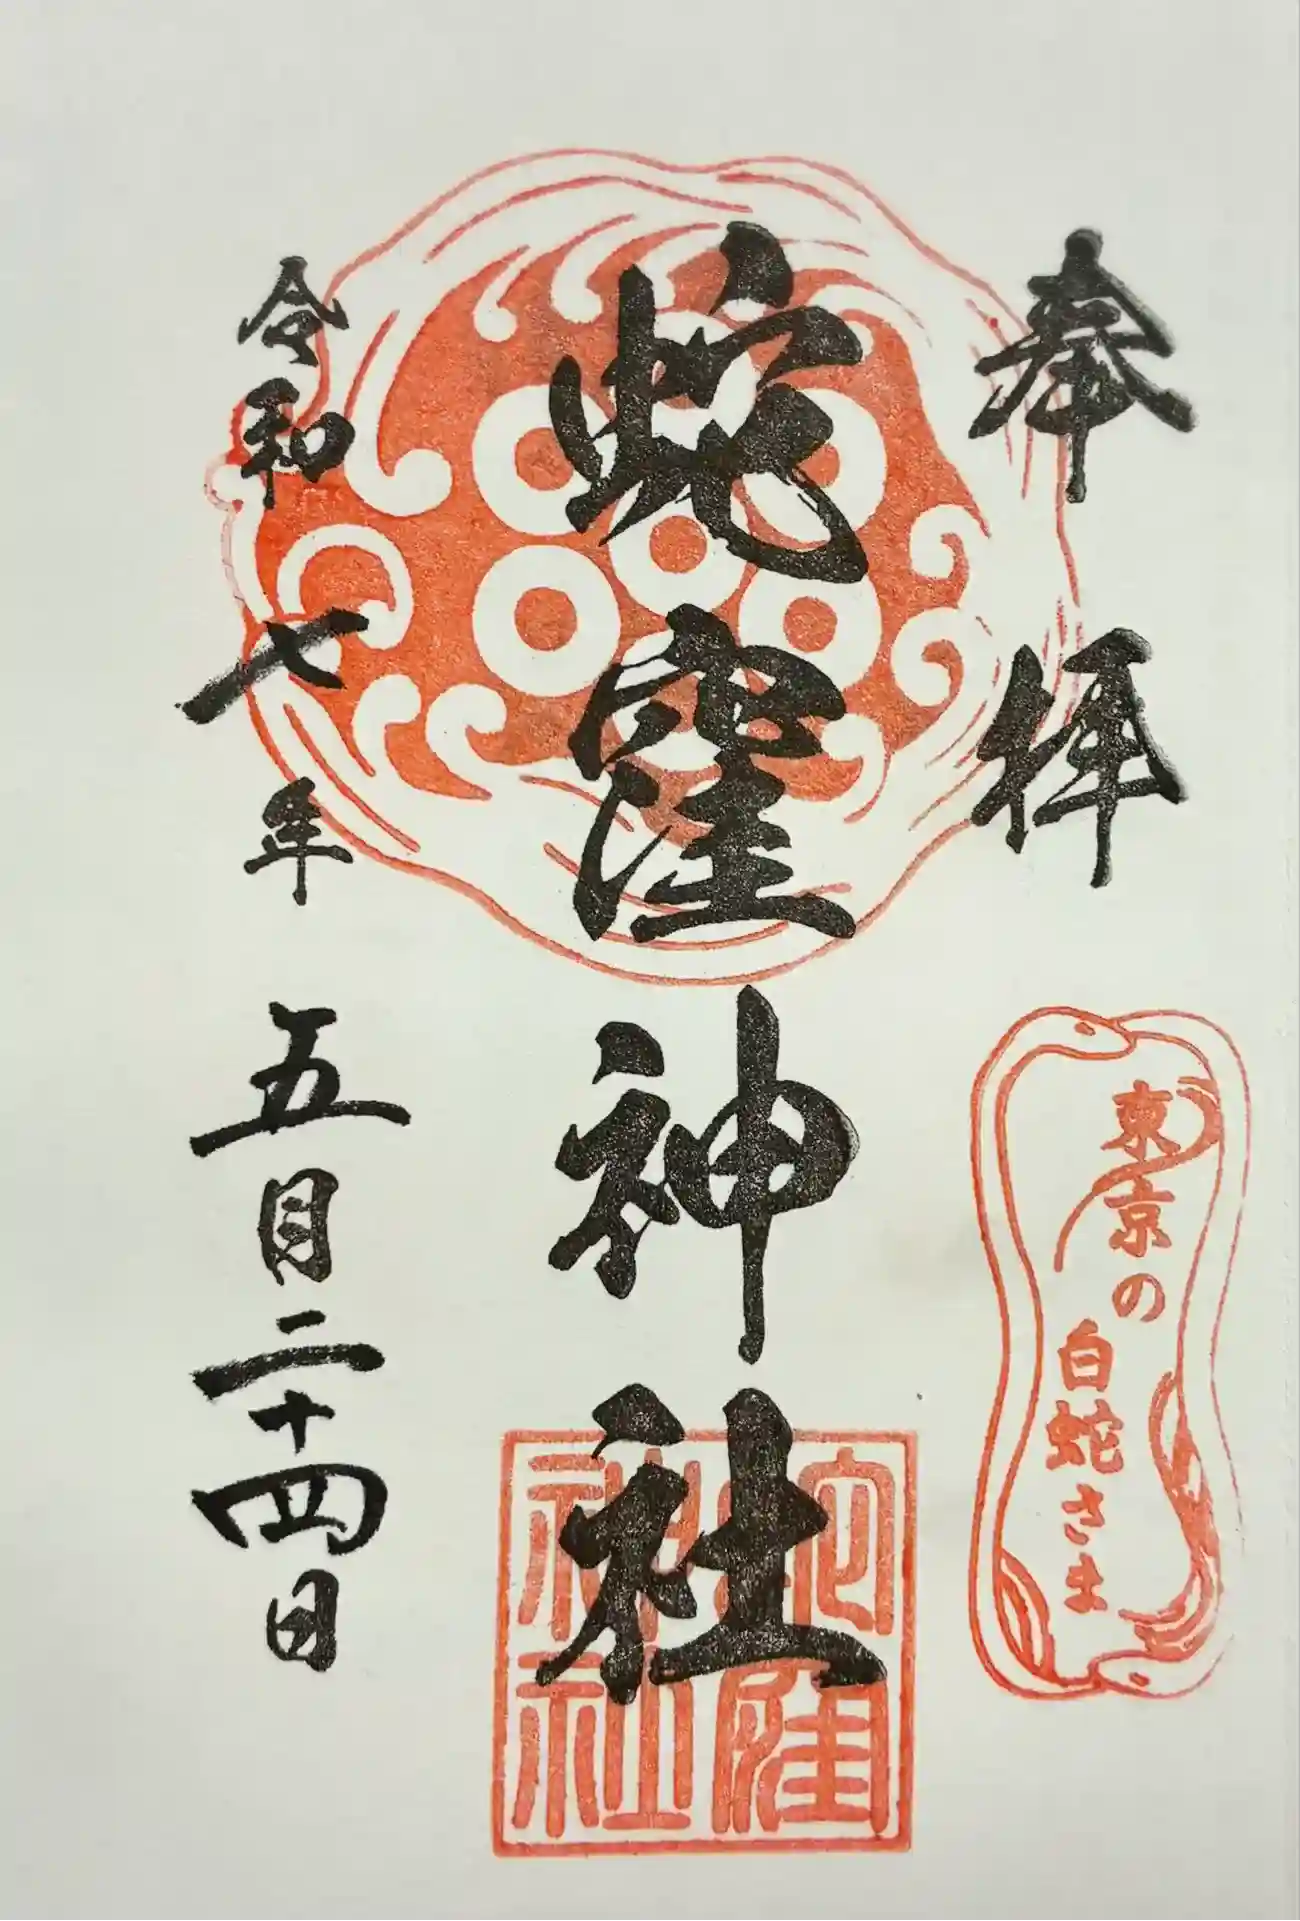 奉拝
東京の
白蛇さま
蛇窪神社
蛇窪
神社
令和七年五月二十四日